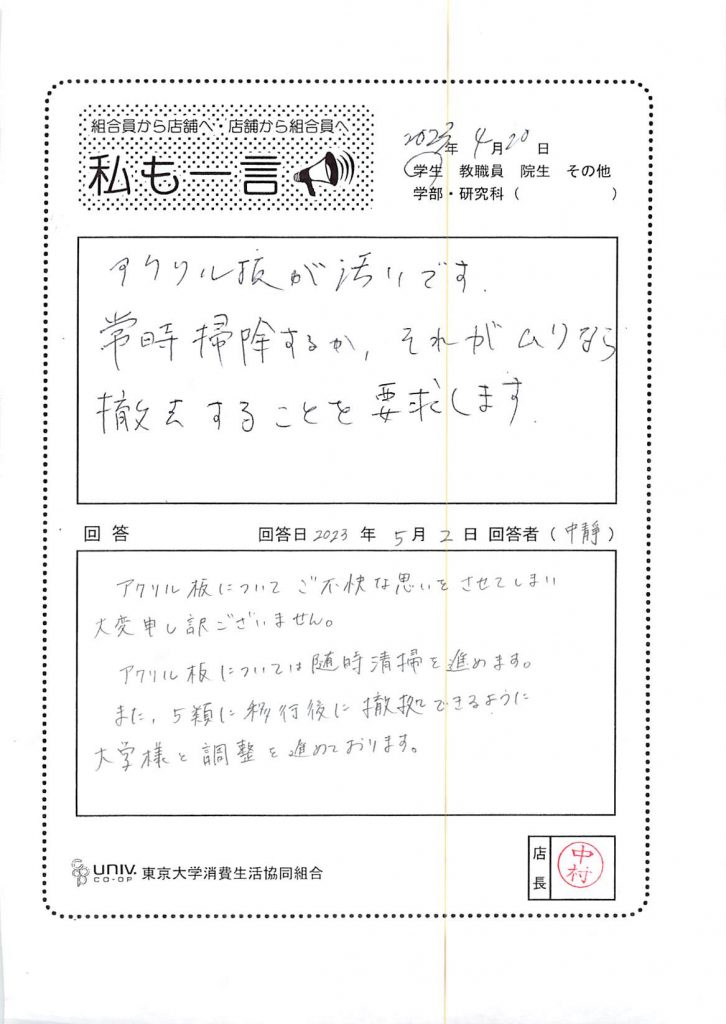 組合員から店舗へ・店舗から組合員へ
私も一言
2023年 4月20日
学生 教職員 院生 その他
学部・研究科（ ）
アクリル板が汚いです.
常時掃除するか, それがムリなら
撤去することを要求します.
回答 回答日2023年 5月2日 回答者（中静）
アクリル板について ご不快な思いをさせてしまい
大変申し訳ございません。
アクリル板については随時清掃を進めます。
また, 5類に移行後に撤拠できるように
大学様と調整を進めております。
UNIV.
CO-OP
東京大学消費生活協同組合
店長
中村